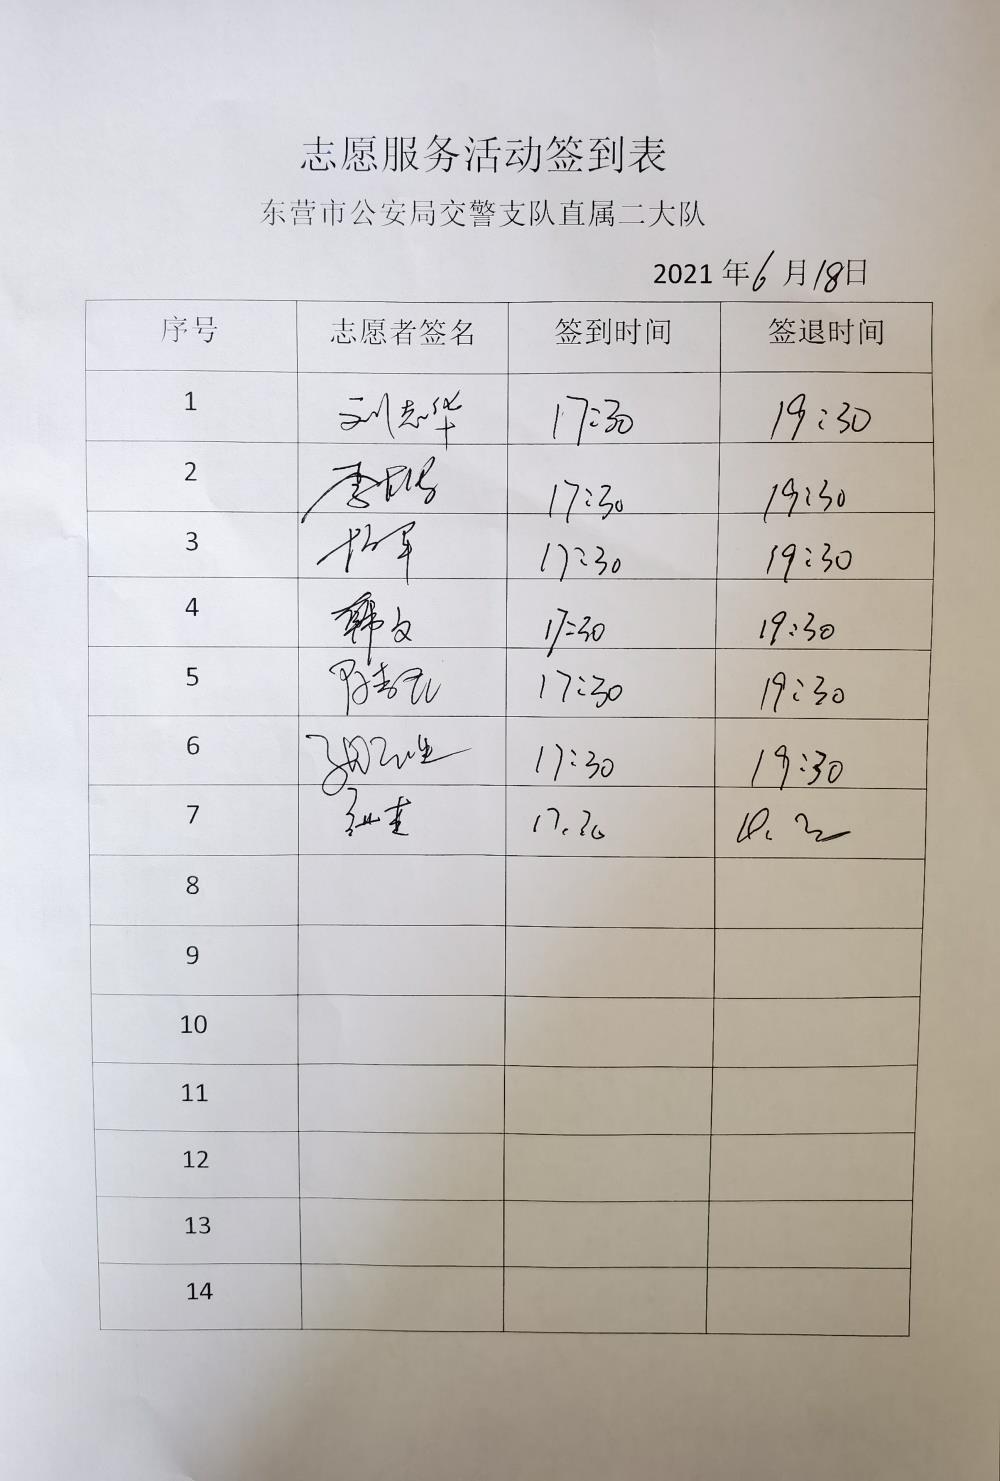 志愿服务活动签到表
东营市公安局交警支队直属二大队
2021 年 6 月 18 日
序号 志愿者签名 签到时间 签退时间
1 刘志华 17:30 19:30
2 17:30 19:30
3 17:30 19:30
4 韩文 17:30 19:30
5 17:30 19:30
6 17:30 19:30
7 17.30
8
9
10
11
12
13
14